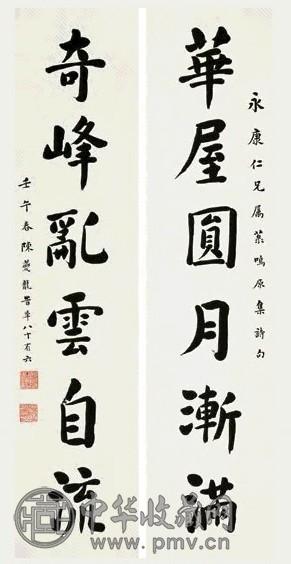 永康仁兄属鳴原集詩句
華屋圓月漸滿
奇峰亂雲自流
壬午春陳夔龍書年八十有六
中华收藏网
www.pmv.cn